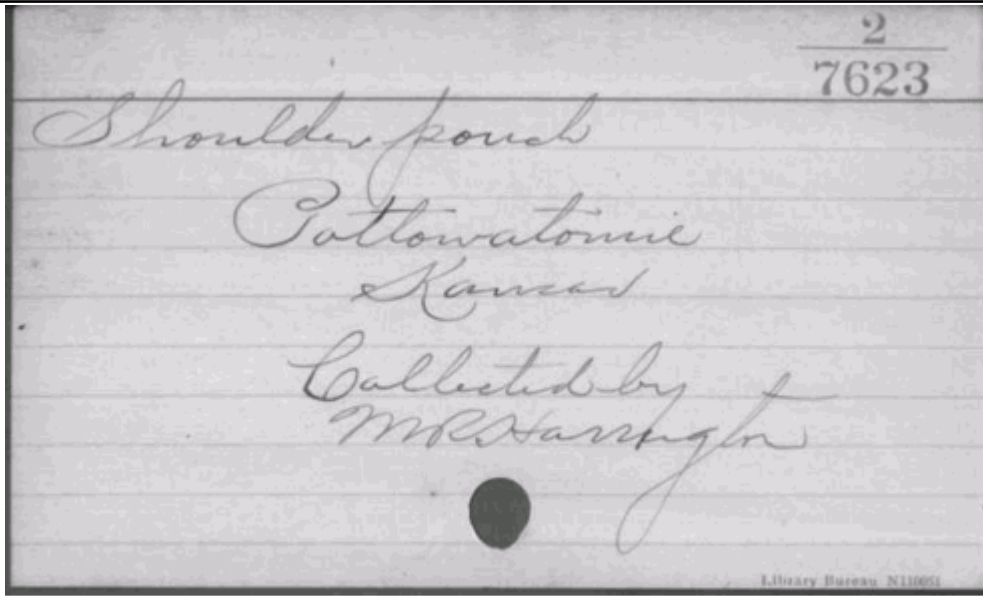 2
7623
Shoulder pouch
Pottowatomie
Kansas
Collected by
MR Harrington
Library Bureau N110051